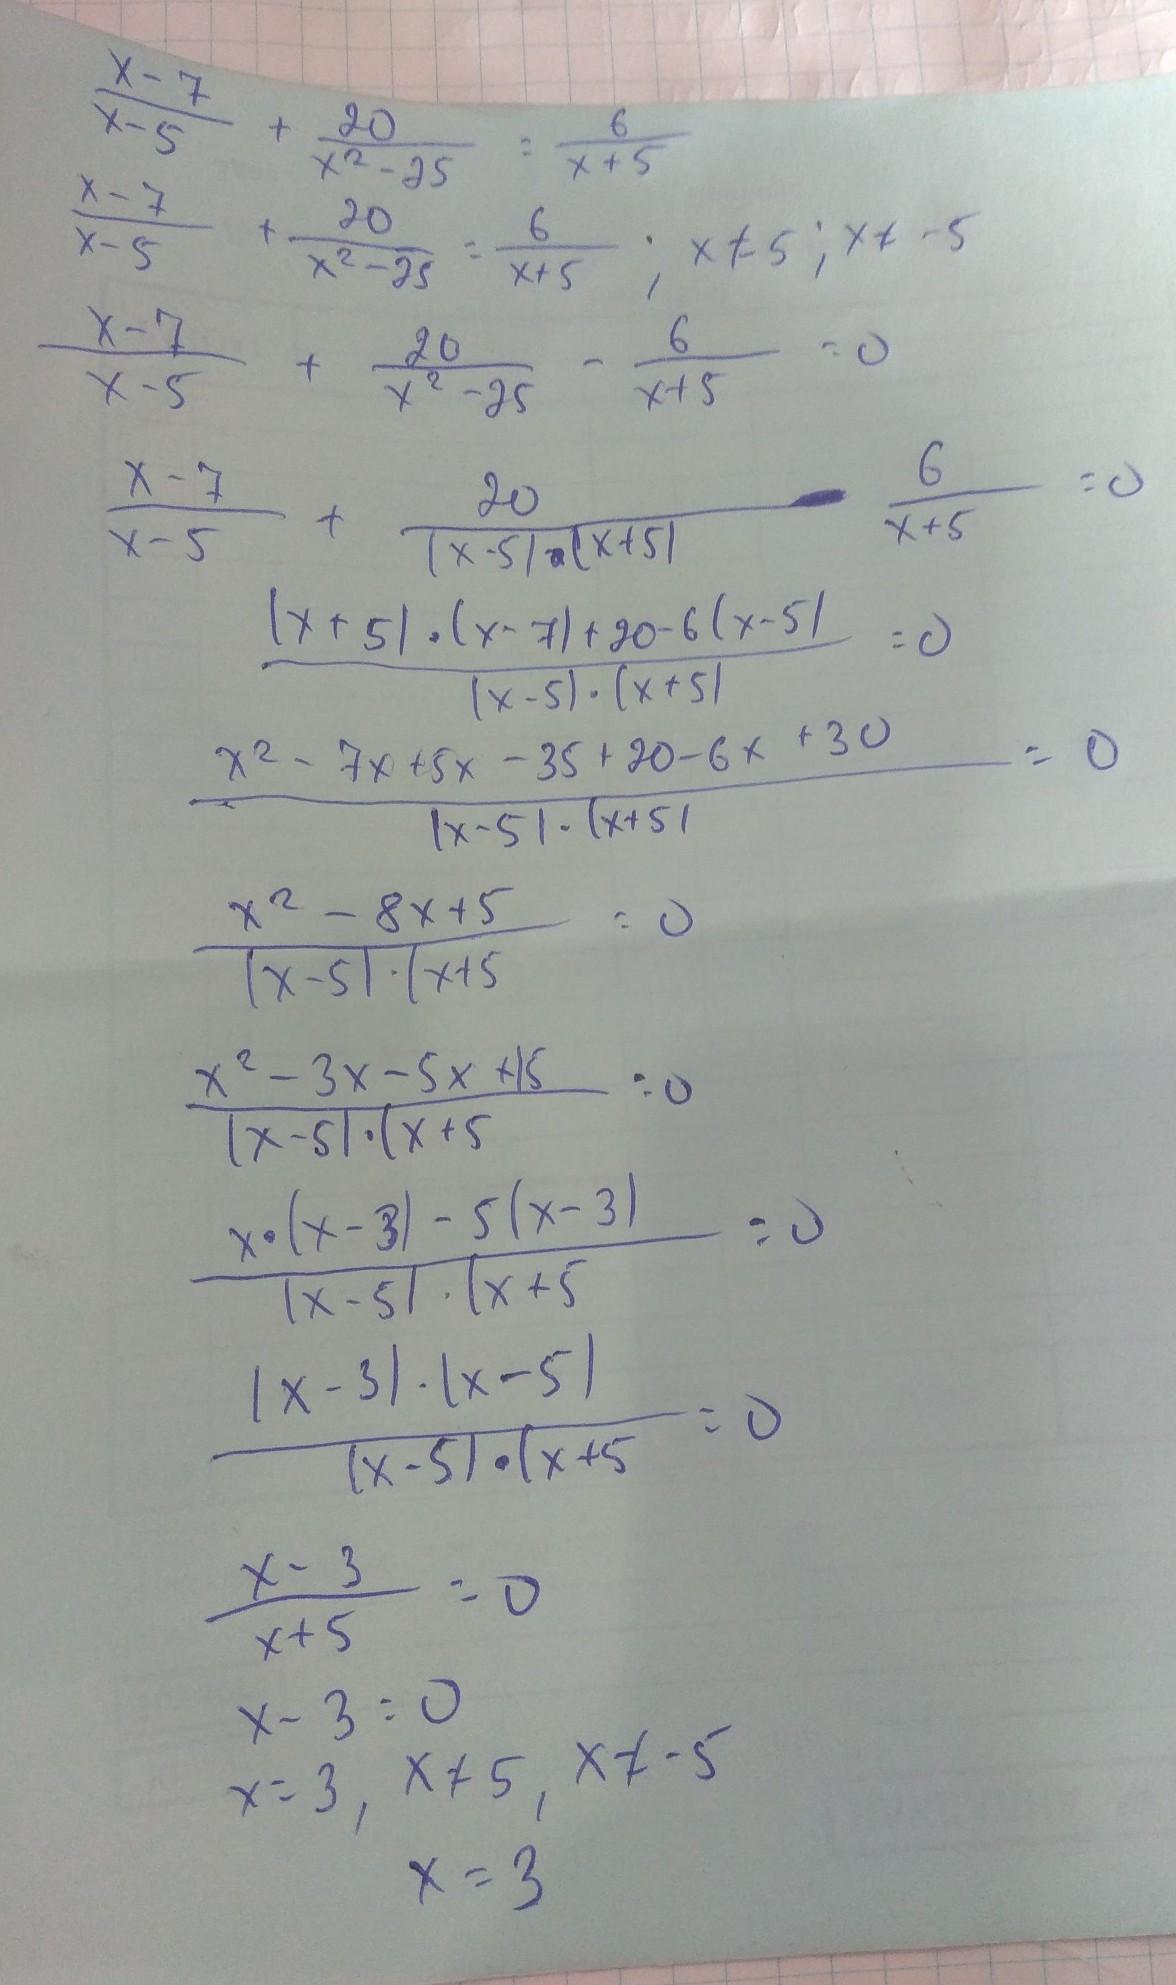 x-7/x-5 + 20/x²-25 = 6/x+5
x-7/x-5 + 20/x²-25 = 6/x+5 ; x≠5 ; x≠-5
x-7/x-5 + 20/x²-25 - 6/x+5 = 0
x-7/x-5 + 20/(x-5)·(x+5) - 6/x+5 = 0
(x+5)·(x-7)+20-6(x-5)/(x-5)·(x+5) = 0
x²-7x+5x-35+20-6x+30/(x-5)·(x+5) = 0
x²-8x+5/(x-5)·(x+5 = 0
x²-3x-5x+15/(x-5)·(x+5 = 0
x·(x-3)-5(x-3)/(x-5)·(x+5 = 0
(x-3)·(x-5)/(x-5)·(x+5 = 0
x-3/x+5 = 0
x-3=0
x=3, x≠5, x≠-5
x=3